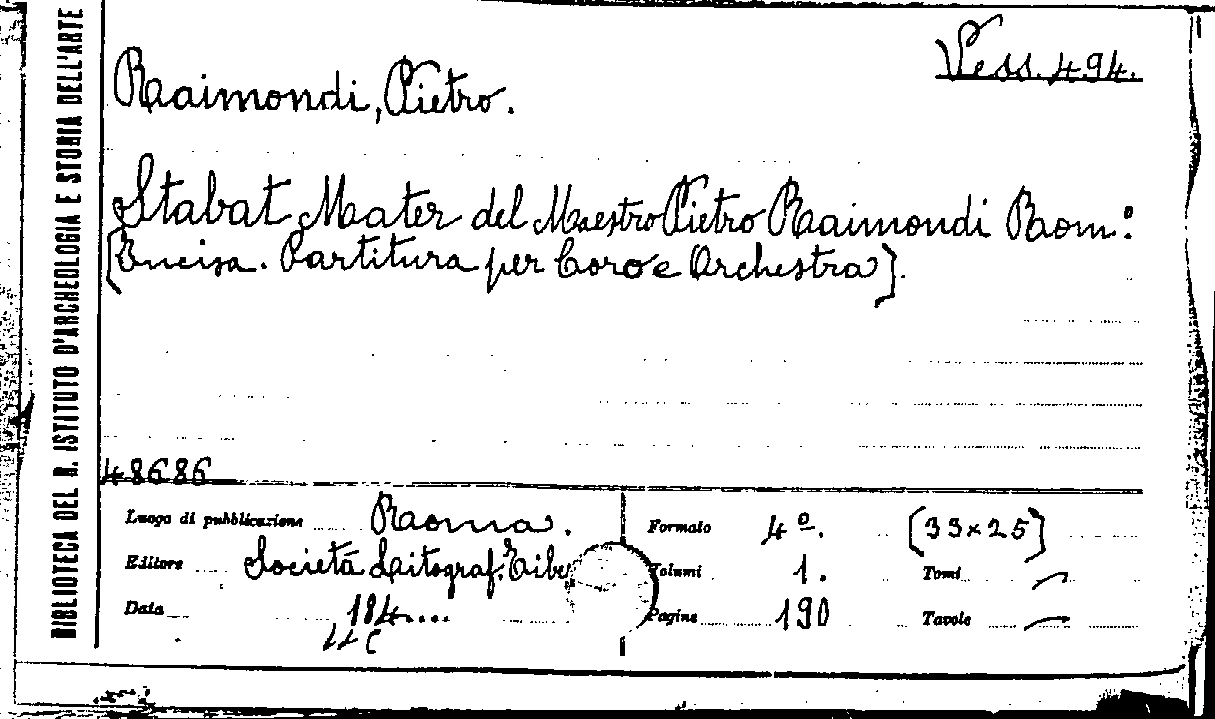 BIBLIOTECA DEL R. ISTITUTO D'ARCHEOLOGIA E STORIA DELL'ARTE
Vess. 494.
Raimondi, Pietro.
Stabat Mater del Maestro Pietro Raimondi Rom:º
[Incisa. Partitura per Coro e Orchestra].
48686
Luogo di pubblicazione Roma.
Editore Società Litograf.
Data 184....
Formato 4º. [33×25]
Volumi 1. Tomi —
Pagine 190 Tavole —